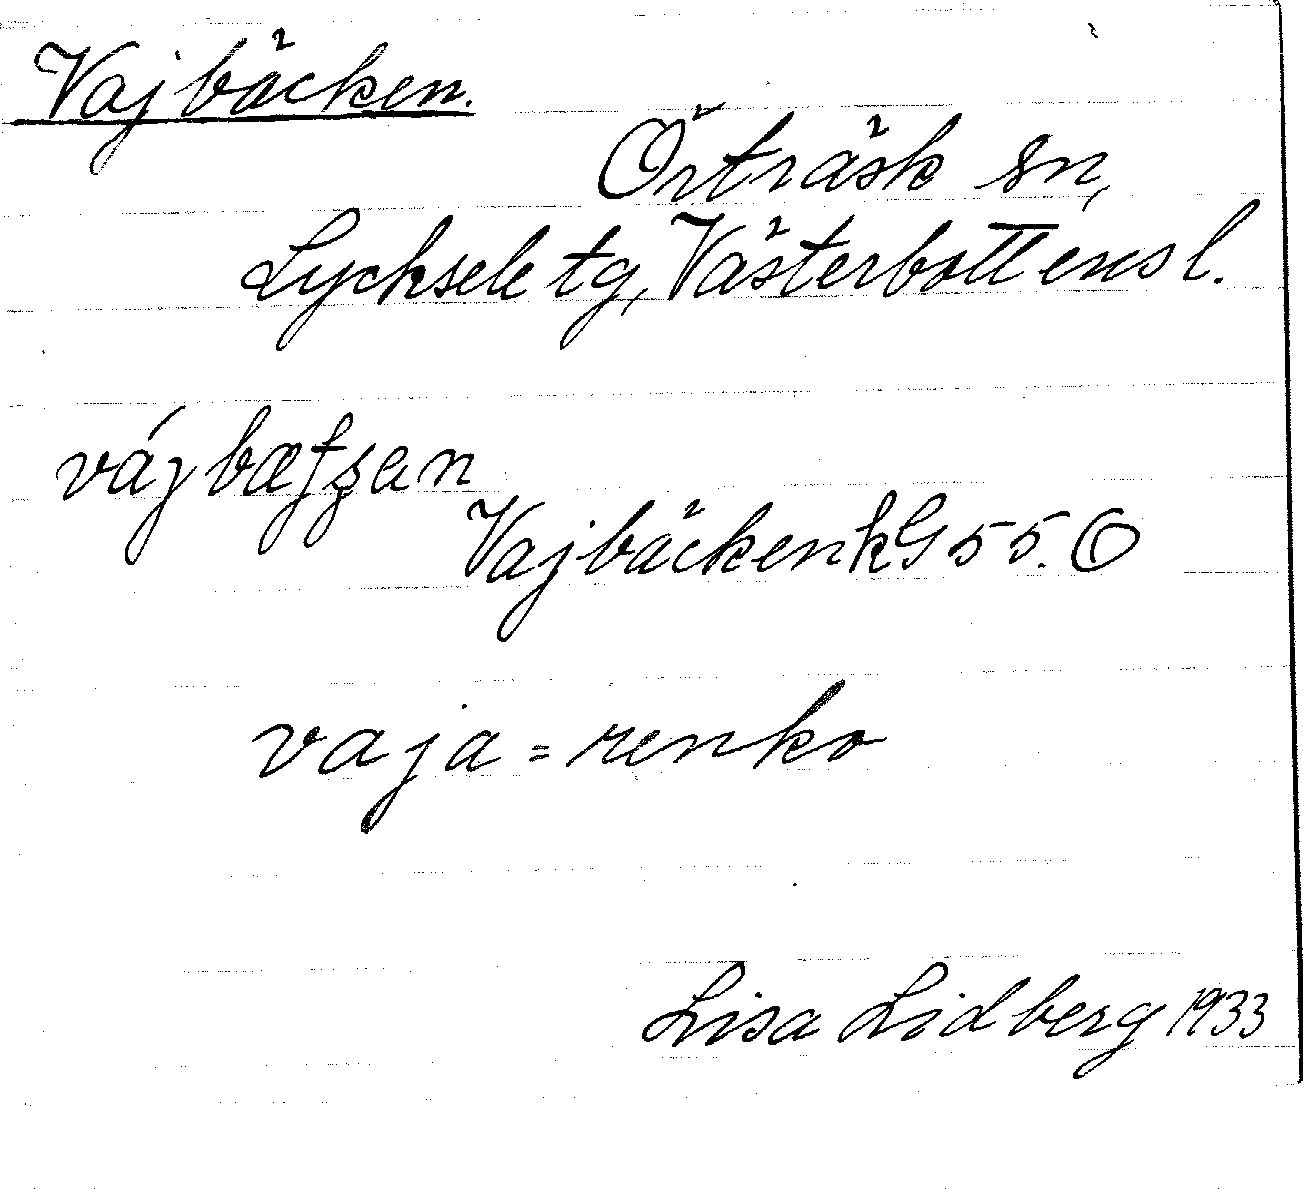 Vajbäcken.
Örträsk sn,
Lycksele tg, Västerbottens l.
vájbæfʒan
Vajbäcken kG 55.
vaja = renko
Lisa Lidberg 1933